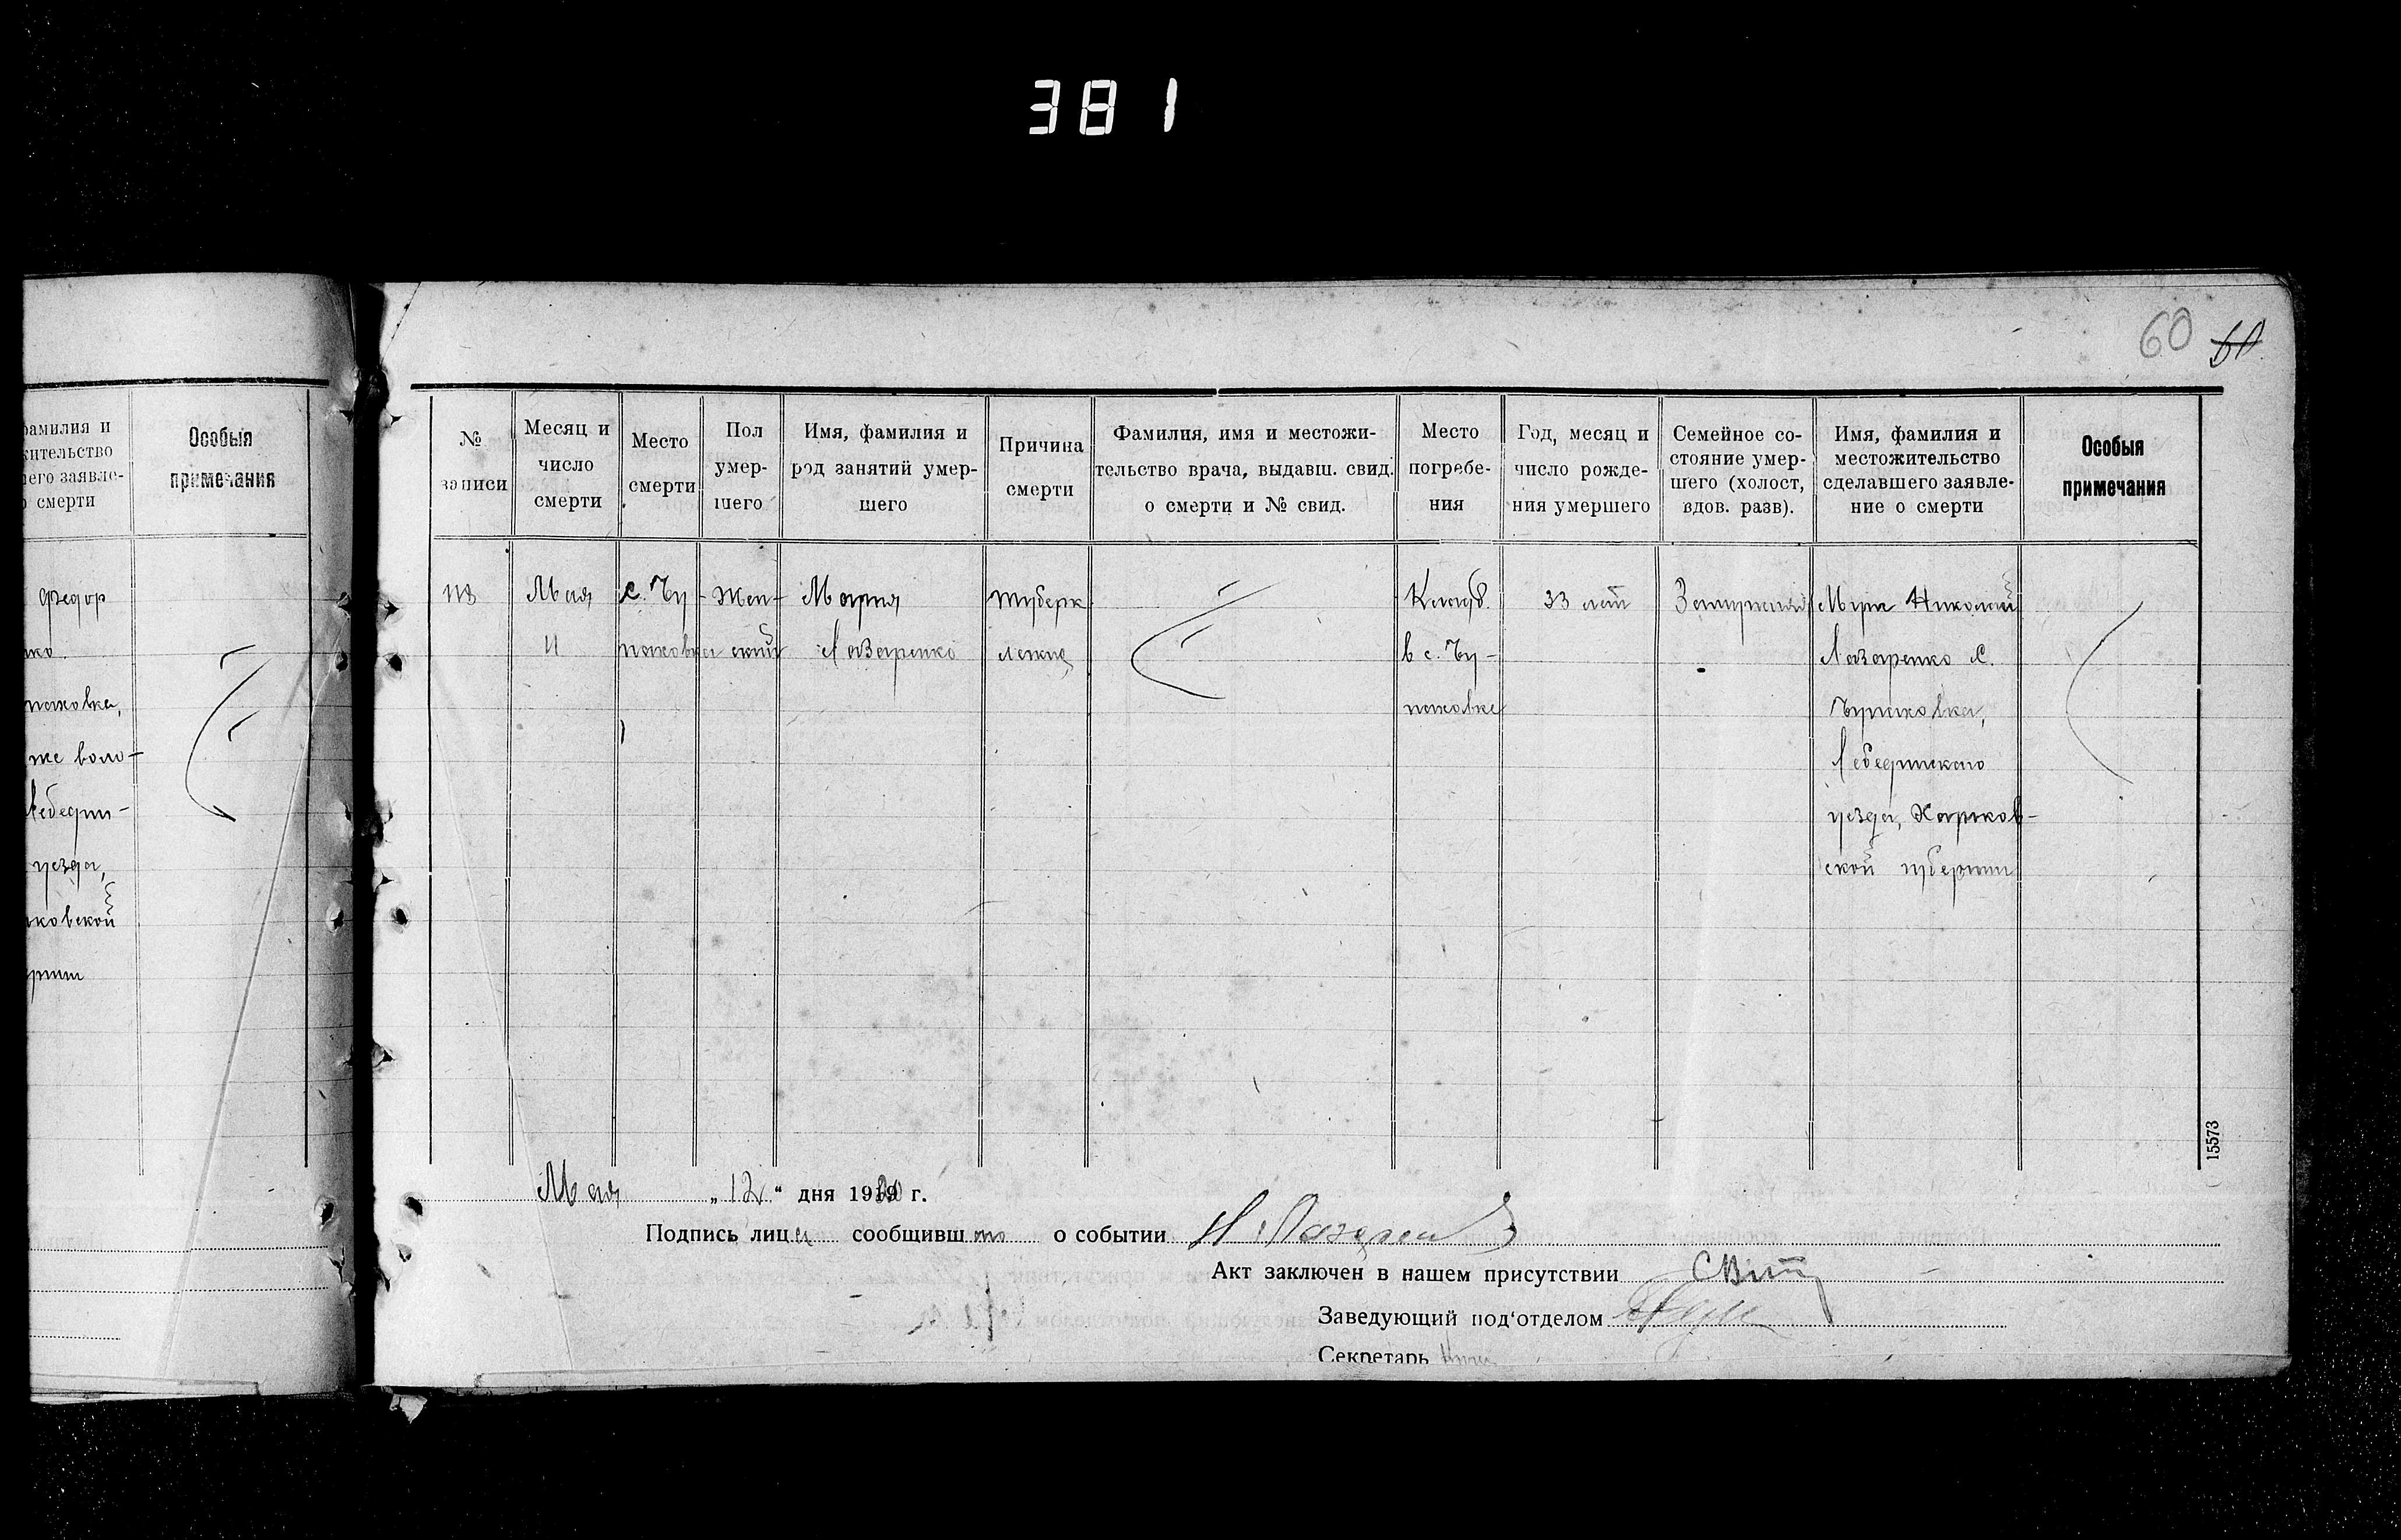 381
60 60
амилия и
жительство
его заявле-
о смерти
Особыя
примечания
Федор
ко
паковка,
же воло-
Лебедин-
уезда,
ьковской
ернии
№
записи
Месяц и
число
смерти
Место
смерти
Пол
умер-
шего
Имя, фамилия и
род занятий умер-
шего
Причина
смерти
Фамилия, имя и местожи-
тельство врача, выдавш. свид.
о смерти и № свид.
Место
погребе-
ния
Год, месяц и
число рожде-
ния умершего
Семейное со-
стояние умер-
шего (холост,
вдов. разв).
Имя, фамилия и
местожительство
сделавшего заявле-
ние о смерти
Особыя
примечания
118
Мая
11
с. Чу-
паковка
Жен-
ский
Мария
Лазаренко
туберк
легких
Кладб.
в с. Чу-
паковке
33 лет
Замужняя
Муж Николай
Лазаренко с.
Чупаковка,
Лебединского
уезда, Харьков-
ской губернии
Мая „ 12 “ дня 1920 г.
Подпись лица сообщившего о событии Н Лазарен
Акт заключен в нашем присутствии
Заведующий под‘отделом
Секретарь
15573